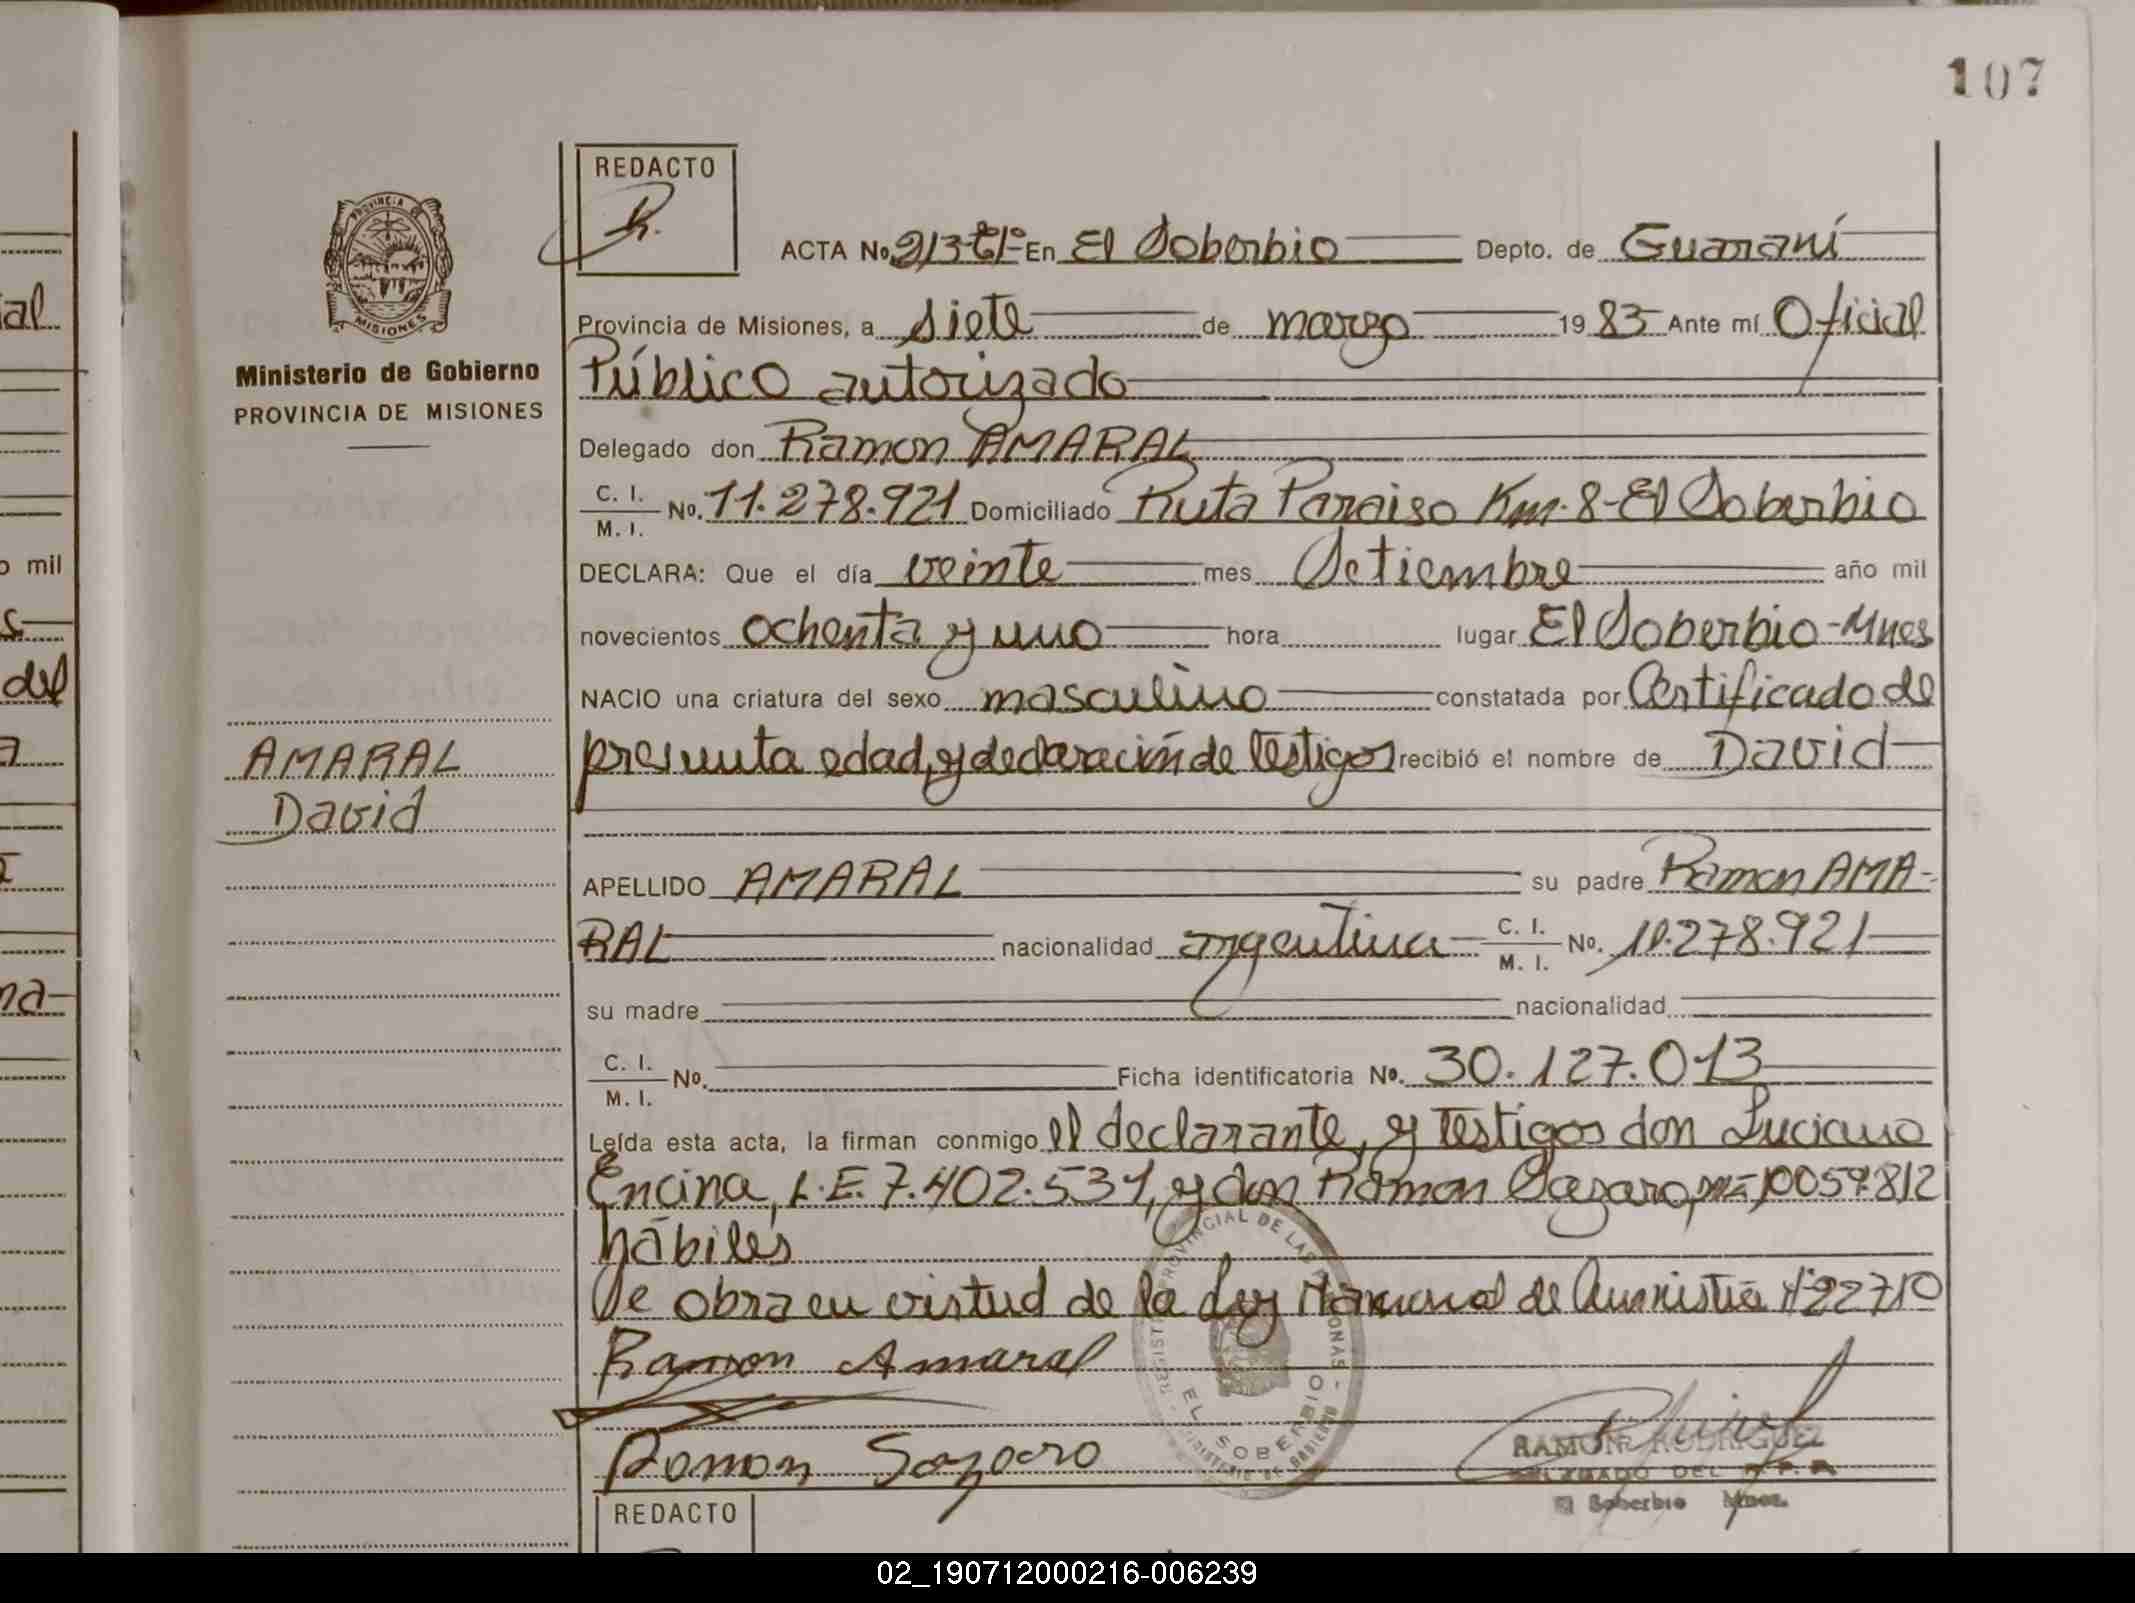 107
REDACTO
ACTA No. 213 tº I° En El Soberbio Depto. de Guaraní
Provincia de Misiones, a siete de marzo 19 83 Ante mí Oficial
Público autorizado
Delegado don Ramon AMARAL
C. I. / M. I. No. 11.278.921 Domiciliado Ruta Paraiso Km. 8-El Soberbio
DECLARA: Que el día veinte mes Setiembre año mil
novecientos ochenta y uno hora lugar El Soberbio-Mnes
NACIO una criatura del sexo masculino constatada por Certificado de
presunta edad, y declaración de testigos recibió el nombre de David
APELLIDO AMARAL su padre Ramon AMA-
RAL nacionalidad argentina C. I. / M. I. No. 11.278.921
su madre nacionalidad
C. I. / M. I. No. Ficha identificatoria No. 30.127.013
Leída esta acta, la firman conmigo el declarante, y testigos don Luciano
Encina, L.E. 7.402.531, y don Ramon Sazaro, 10059812
hábiles
Se obra en virtud de la Ley Nacional de Amnistía Nº 22710
Ramon Amaral
Ramon Sazaro
RAMON RODRIGUEZ
DELEGADO DEL R. P. P.
El Soberbio Mnes.
REGISTRO PROVINCIAL DE LAS PERSONAS
EL SOBERBIO
MINISTERIO DE GOBIERNO
REDACTO
PROVINCIA DE
MISIONES
Ministerio de Gobierno
PROVINCIA DE MISIONES
AMARAL
David
al
o mil
s
del
a
na
02_190712000216-006239